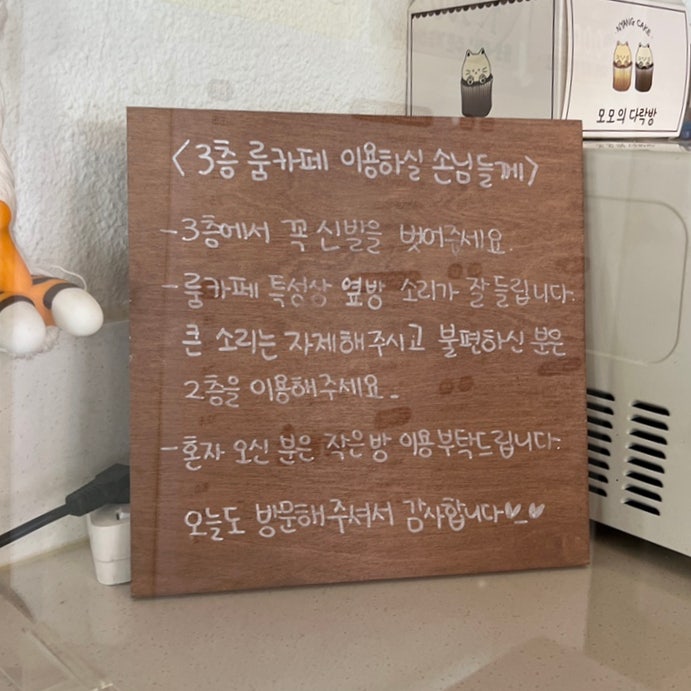 NYANG CAKE
모모의 다락방
<3층 룸카페 이용하실 손님들께>
-3층에서 꼭 신발을 벗어주세요.
-룸카페 특성상 옆방 소리가 잘 들립니다.
큰 소리는 자제해주시고 불편하신 분은
2층을 이용해주세요.
-혼자 오신 분은 작은방 이용부탁드립니다.
오늘도 방문해주셔서 감사합니다♥_♥